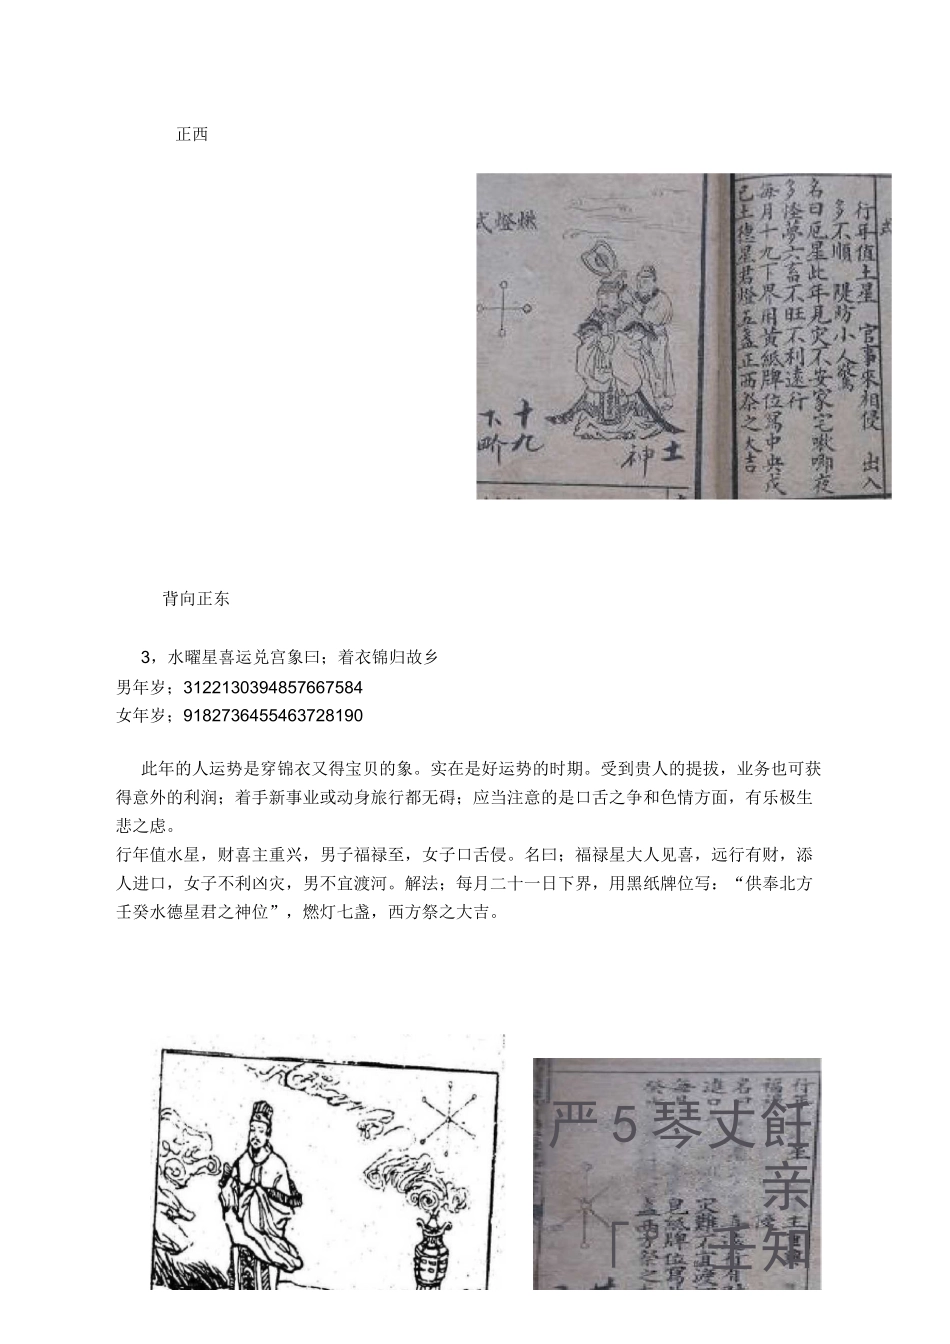 正西
燃燈式
十九
下界
土神
行年值土星 官事來相侵 出入
多不順 隄防小人驚
名曰厄星此年見灾不安家宅啾唧夜
多怪夢六畜不旺不利遠行
每月十九下界用黄紙牌位寫中央戊
己土德星君燈五盏正西祭之大吉
背向正东
3，水曜星喜运兑宫象曰；着衣锦归故乡
男年岁；3122130394857667584
女年岁；9182736455463728190
此年的人运势是穿锦衣又得宝贝的象。实在是好运势的时期。受到贵人的提拔，业务也可获
得意外的利润；着手新事业或动身旅行都无碍；应当注意的是口舌之争和色情方面，有乐极生
悲之虑。
行年值水星，财喜主重兴，男子福禄至，女子口舌侵。名曰；福禄星大人见喜，远行有财，添
人进口，女子不利凶灾，男不宜渡河。解法；每月二十一日下界，用黑纸牌位写：“供奉北方
壬癸水德星君之神位”，燃灯七盏，西方祭之大吉。
严5琴丈飪
亲
「 壬知